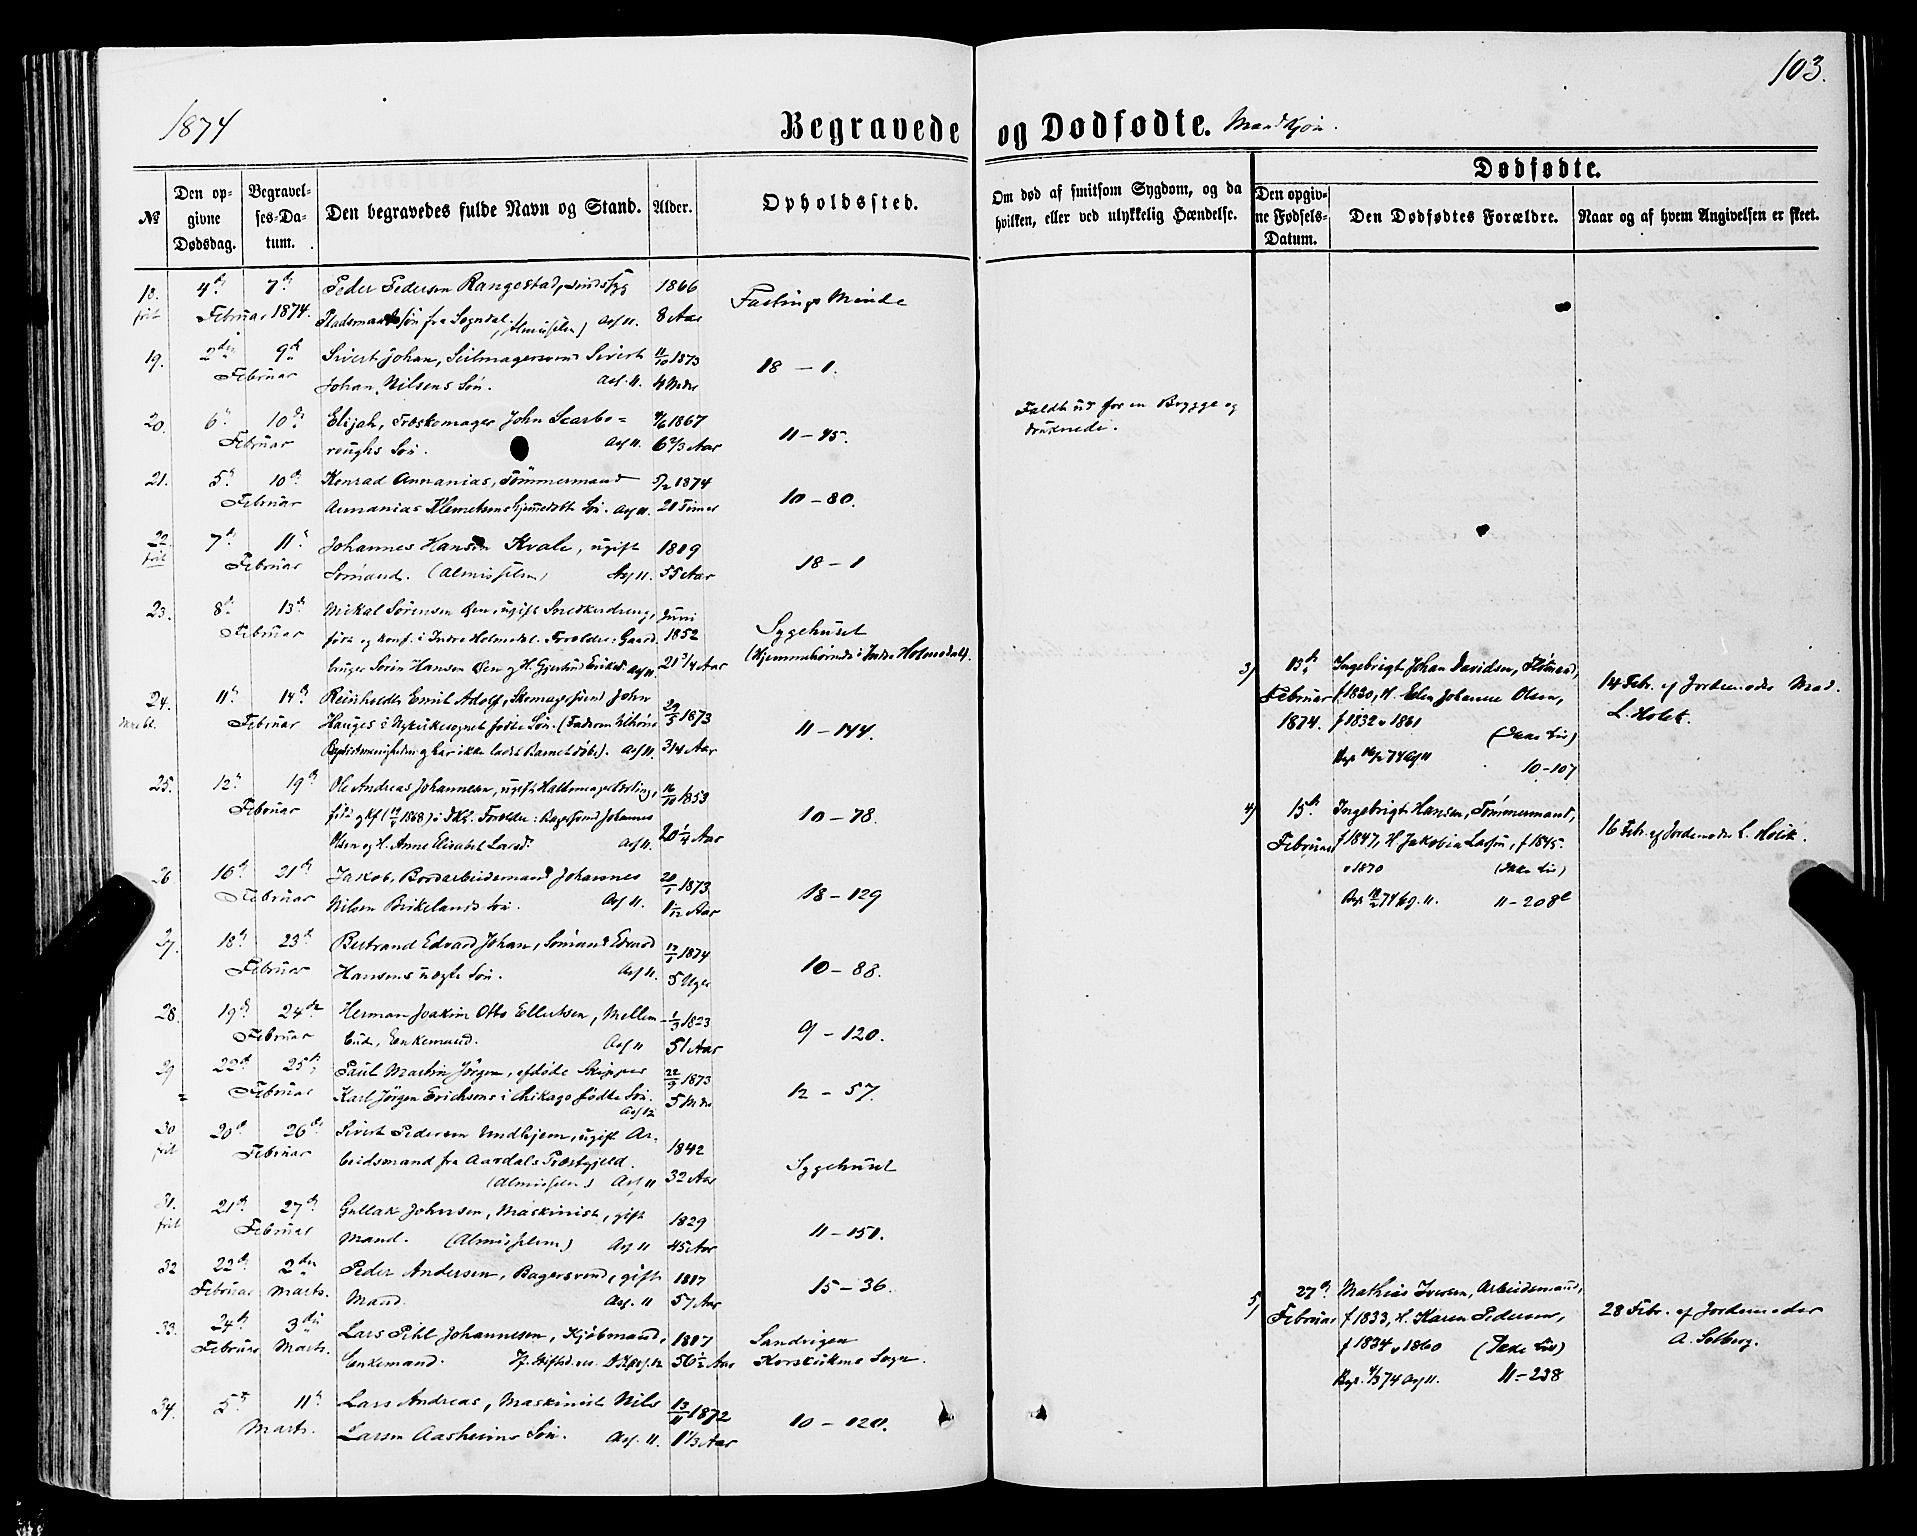 1874
103.
Begravede og Dødfødte. Mandkjøn.
№
Den opgivne Dødsdag.
Begravelses-Datum.
Den begravedes fulde Navn og Stand.
Alder.
Opholdssted.
Om død af smitsom Sygdom, og da hvilken, eller ved ulykkelig Hændelse.
Dødfødte.
Den opgivne Fødsels-Datum.
Den Dødfødtes Forældre.
Naar og af hvem Angivelsen er skeet.
18. 4d 7d Peder Pedersen Rangestad, sindssyg 1866 Fastings Minde
frit Februar 1874. Pladsmands søn fra Sogndal. (Almissilem) Asf 11. 8 Aar
19. 2den 9d Sivert Johan, Seilmagersvend Sivert 11/10 1873 18 – 1.
Februar Johan Nilsens Søn. Asf. 11. 4 Mdr
20. 6d 10d Elijah, Træskomager John Scarbo= 4/6 1867 11 – 45. Faldt ud for en Brygge og
Februar roughs Søn. Asf 11. 6 2/3 Aar druknede.
21. 5d 10d Konrad Annanias, Tømmermand 5/2 1874 10 – 80.
Februar Annanias Klemetsens hjemmedøbt Søn. Asf 11. 20 Timer
22. 7d 11d Johannes Hansen Kvale, ugift 1819 18 – 1
frit Februar Sømand. (Almissilem) Asf 11. 55 Aar
23. 8d 13d Mikal Sørensen Øen, ugift Snedkerdreng, Juni Sygehuset
Februar født og konf. i Indre Holmedal. Forældre: Gaard 1852 (Hjemmehørende i Indre Holmedal).
bruger Søren Hansen Øen og H. Gjertrud Eriksd. Asf 11. 21 3/4 Aar
24. 11d 14d Reinholdt Emil Adolf, Skomagersvend John 29/5 1873 11 – 144.
Februar Hauges i Nykirkesognet fødte Søn. (Faderen tilhører
Baptistmenigheden og har ikke ladet Barnet døbe). Asf 11. 3/4 Aar
3) 13d Ingebrigt Johan Davidsen, f 1830, H. Elen Johanne Olsen, 14 Febr. af Jordemoder Mad.
Februar 1874. f 1832 v 1861 (Ikke Liv) L. Holst.
Begr 16/2 74 Asf 11 10 – 107
25. 12d 19d Ole Andreas Johannesen, ugift Lærling, 16/10 1853 10 – 78.
Februar født og kf ( 1868) i DK. Forældre: Bagersvend Johannes
Olsen og H. Anne Elisabet Larsd. Asf 11. 20 1/4 Aar
4) 15d Ingebrigt Hansen, Tømmermand, 16 Febr. af Jordemoder L. Heik.
Februar f 1847, H. Jakobia Larsen, f 1845.
v 1870 (Ikke Liv)
Begr. 18/2 74 Asf. 11. 11 – 208 b
26 16d 21d Jakob, Bordarbeidsmand Johannes 20/1 1873 18 – 129
Februar Nilsen Birkelands Søn. Asf 11. 1 1/12 Aar
27. 18d 23d Bertrand Edvard Johan, Sømand Edvard 1874 10 – 88.
Februar Hansens uægte Søn. Asf 11. 5 Uger
28. 19d 24de Herman Joakim Otto Ellertsen, Mellem- 1/3 1823 9 – 120.
Februar bud, Enkemand. Asf 11 51 Aar
29 22d 25d Paul Martin Jørgen, afdøde Skipper 22/9 1873 12 – 57.
Februar Karl Jørgen Erichsens i Chikago fødte Søn. Asf 12 5 Mdr
30 20d 26de Sivert Pedersen Undhjem, ugift Ar- 1842 Sygehuset
frit Februar beidsmand fra Aardals Præstegjeld. (Almissilem) Asf 11 32 Aar
31. 21d 27d Gullak Johnsen, Maskinist, gift 1829 11 – 151.
frit Februar Mand. (Almissilem) Asf 11 45 Aar
32 22d 2den Peder Andersen, Bagersvend, gift 1817 15 – 36.
Februar Marts. Mand. Asf. 11 57 Aar
33. 24d 3die Lars Pihl Johannesen, Kjøbmand, 1817 Sandvigen
Februar Marts. Enkemand. 56 1/2 Aar Korskirkens Sogn.
5) 27d Mathias Iversen, Arbeidsmand, 28 Febr. af Jordemoder
Februar f 1833, H. Karen Pedersen, A. Solberg.
f 1834 v 1860 (Ikke Liv)
Begr. 4/3 74 Asf 11. 11 – 238
34. 5d 11d Lars Andreas, Maskinist Nils 13/11 1872 10 – 120.
Marts. Larsen Aasheims Søn. Asf. 11. 1 1/3 Aar